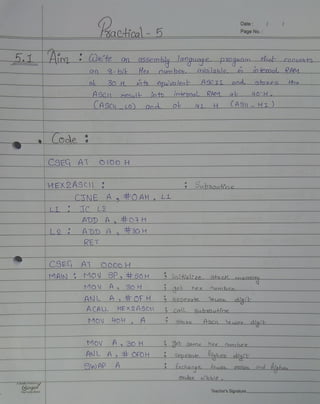 Practical - 5
Date : / /
Page No. :
5.1 Aim : Write an assembly language program that converts
an 8-bit Hex number available in internal RAM
at 30H into equivalent ASCII and stores the
ASCII result into internal RAM at 40H.
(ASCII_LO) and at 41 H (ASCII_HI)
Code :
CSEG AT 0100H
HEX2ASCII : ; Subroutine
CJNE A, #0AH, L1
L1 : JC L2
ADD A, #07H
L2 : ADD A, #30H
RET
CSEG AT 0000H
MAIN : MOV SP, #50H ; initialize stack memory
MOV A, 30H ; get hex number
ANL A, #0FH ; separate lower digit
ACALL HEX2ASCII ; call subroutine
MOV 40H, A ; store Ascii lower digit
MOV A, 30H ; get same hex number
ANL A, #0F0H ; separate higher digit
SWAP A ; Exchange lower and higher
order nibble.
Teacher's Signature